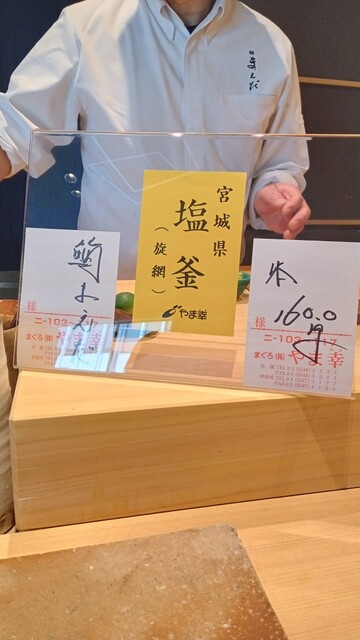 鮨 まえだ
宮城県
塩釜
(旋網)
やま幸
鮨 まえだ
様
ニ-103-
まぐろ(株) やま幸
160.0
様
ニ-103-
17
まぐろ(株) やま幸